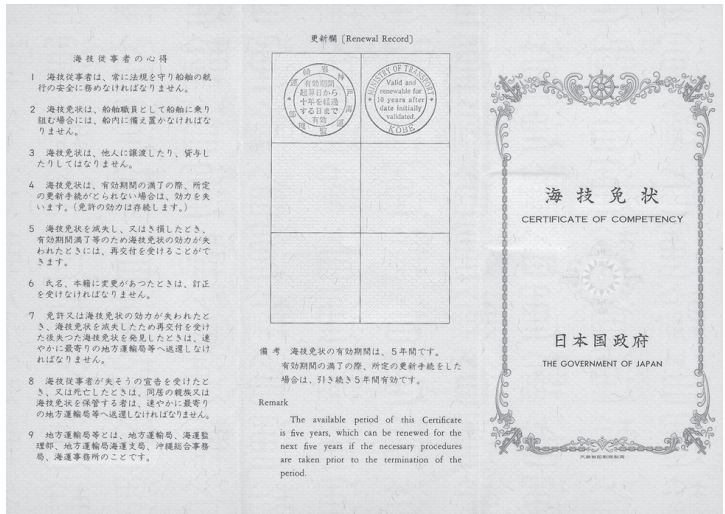 海技従事者の心得
1 海技従事者は、常に法規を守り船舶の航
行の安全に務めなければなりません。
2 海技免状は、船舶職員として船舶に乗り
組む場合には、船内に備え置かなければな
りません。
3 海技免状は、他人に譲渡したり、貸与し
たりしてはなりません。
4 海技免状は、有効期間の満了の際、所定
の更新手続がとられない場合は、効力を失
います。（免許の効力は存続します。）
5 海技免状を滅失し、又はき損したとき、
有効期間満了等のため海技免状の効力が失
われたときには、再交付を受けることがで
きます。
6 氏名、本籍に変更があつたときは、訂正
を受けなければなりません。
7 免許又は海技免状の効力が失われたと
き、海技免状を滅失したため再交付を受け
た後失つた海技免状を発見したときは、速
やかに最寄りの地方運輸局等へ返還しなけ
ればなりません。
8 海技従事者が失そうの宣告を受けたと
き、又は死亡したときは、同居の親族又は
海技免状を保管する者は、速やかに最寄り
の地方運輸局等へ返還しなければなりません。
9 地方運輸局等とは、地方運輸局、海運監
理部、地方運輸局海運支局、沖縄総合事務
局、海運事務所のことです。
更新欄 [Renewal Record]
有効期間
起算日から
十年を経過
する日まで
有効
MINISTRY OF TRANSPORT
Valid and
renewable for
10 years after
date initially
validated
KOBE
備考 海技免状の有効期間は、5年間です。
有効期間の満了の際、所定の更新手続をした
場合は、引き続き5年間有効です。
Remark
The available period of this Certificate
is five years, which can be renewed for the
next five years if the necessary procedures
are taken prior to the termination of the
period.
海技免状
CERTIFICATE OF COMPETENCY
日本国政府
THE GOVERNMENT OF JAPAN